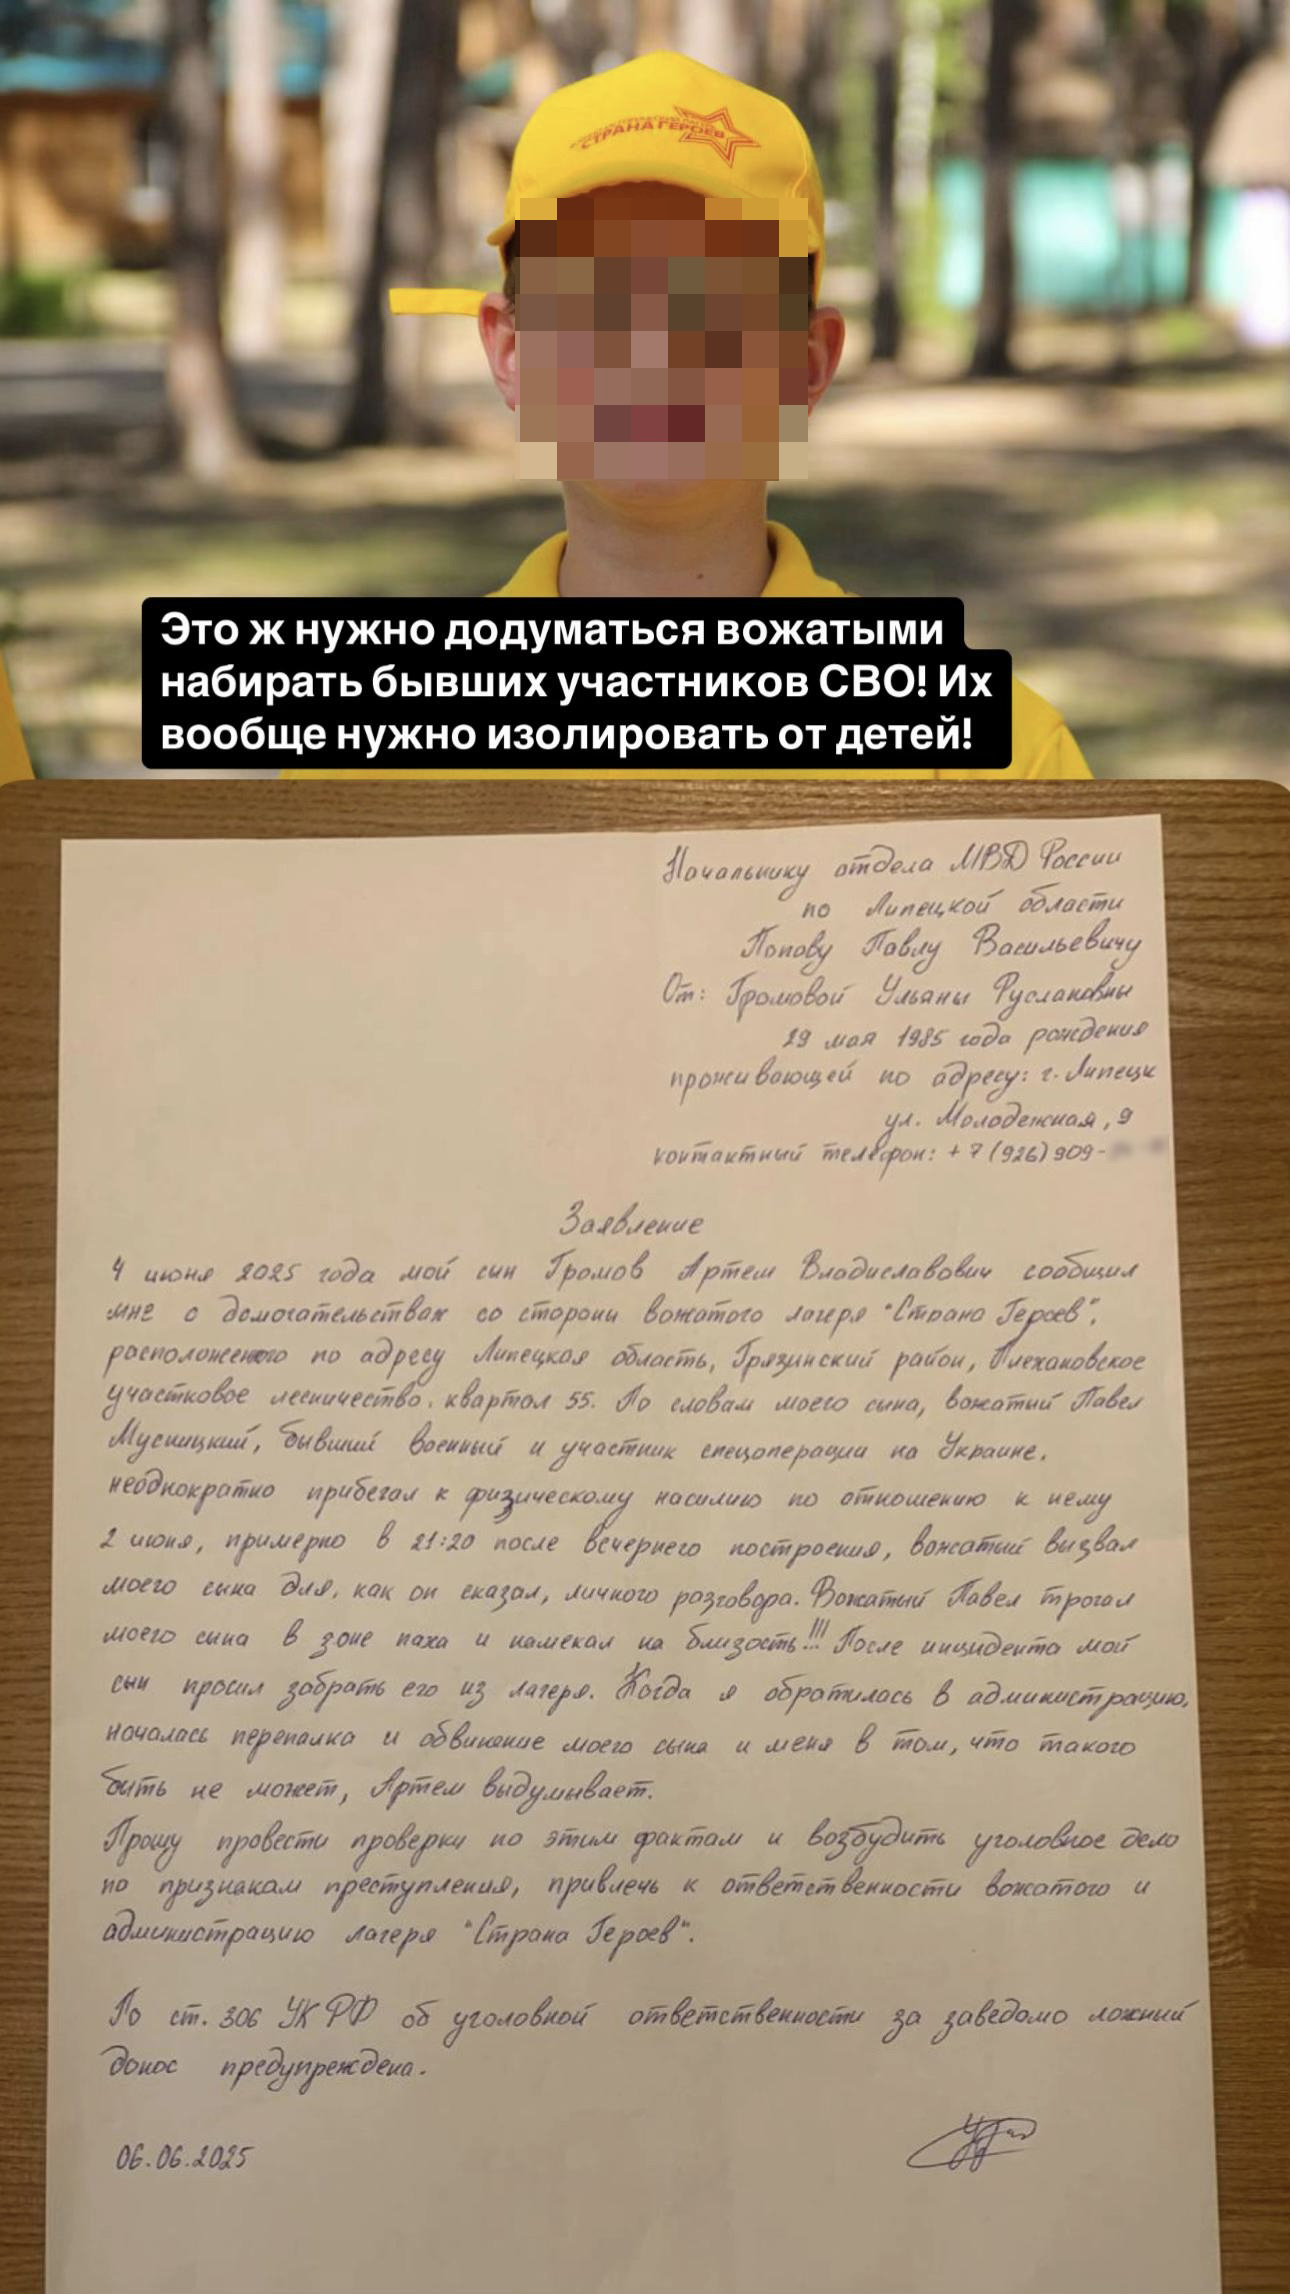 СТРАНА ГЕРОЕВ
Это ж нужно додуматься вожатыми
набирать бывших участников СВО! Их
вообще нужно изолировать от детей!
Начальнику отдела МВД России
по Липецкой области
Попову Павлу Васильевичу
От: Громовой Ульяны Руслановны
29 мая 1985 года рождения
проживающей по адресу: г. Липецк
ул. Молодежная, 9
контактный телефон: +7 (926) 909-
Заявление
4 июня 2025 года мой сын Громов Артем Владиславович сообщил
мне о домогательствах со стороны вожатого лагеря "Страна Героев",
расположенного по адресу Липецкая область, Грязинский район, Плехановское
участковое лесничество, квартал 55. По словам моего сына, вожатый Павел
Мусницкий, бывший военный и участник спецоперации на Украине,
неоднократно прибегал к физическому насилию по отношению к нему
2 июня, примерно в 21:20 после вечернего построения, вожатый вызвал
моего сына для, как он сказал, личного разговора. Вожатый Павел трогал
моего сына в зоне паха и намекал на близость!!! После инцидента мой
сын просил забрать его из лагеря. Когда я обратилась в администрацию,
началась перепалка и обвинение моего сына и меня в том, что такого
быть не может, Артем выдумывает.
Прошу провести проверку по этим фактам и возбудить уголовное дело
по признакам преступления, привлечь к ответственности вожатого и
администрацию лагеря "Страна Героев".
По ст. 306 УК РФ об уголовной ответственности за заведомо ложный
донос предупреждена.
06.06.2025